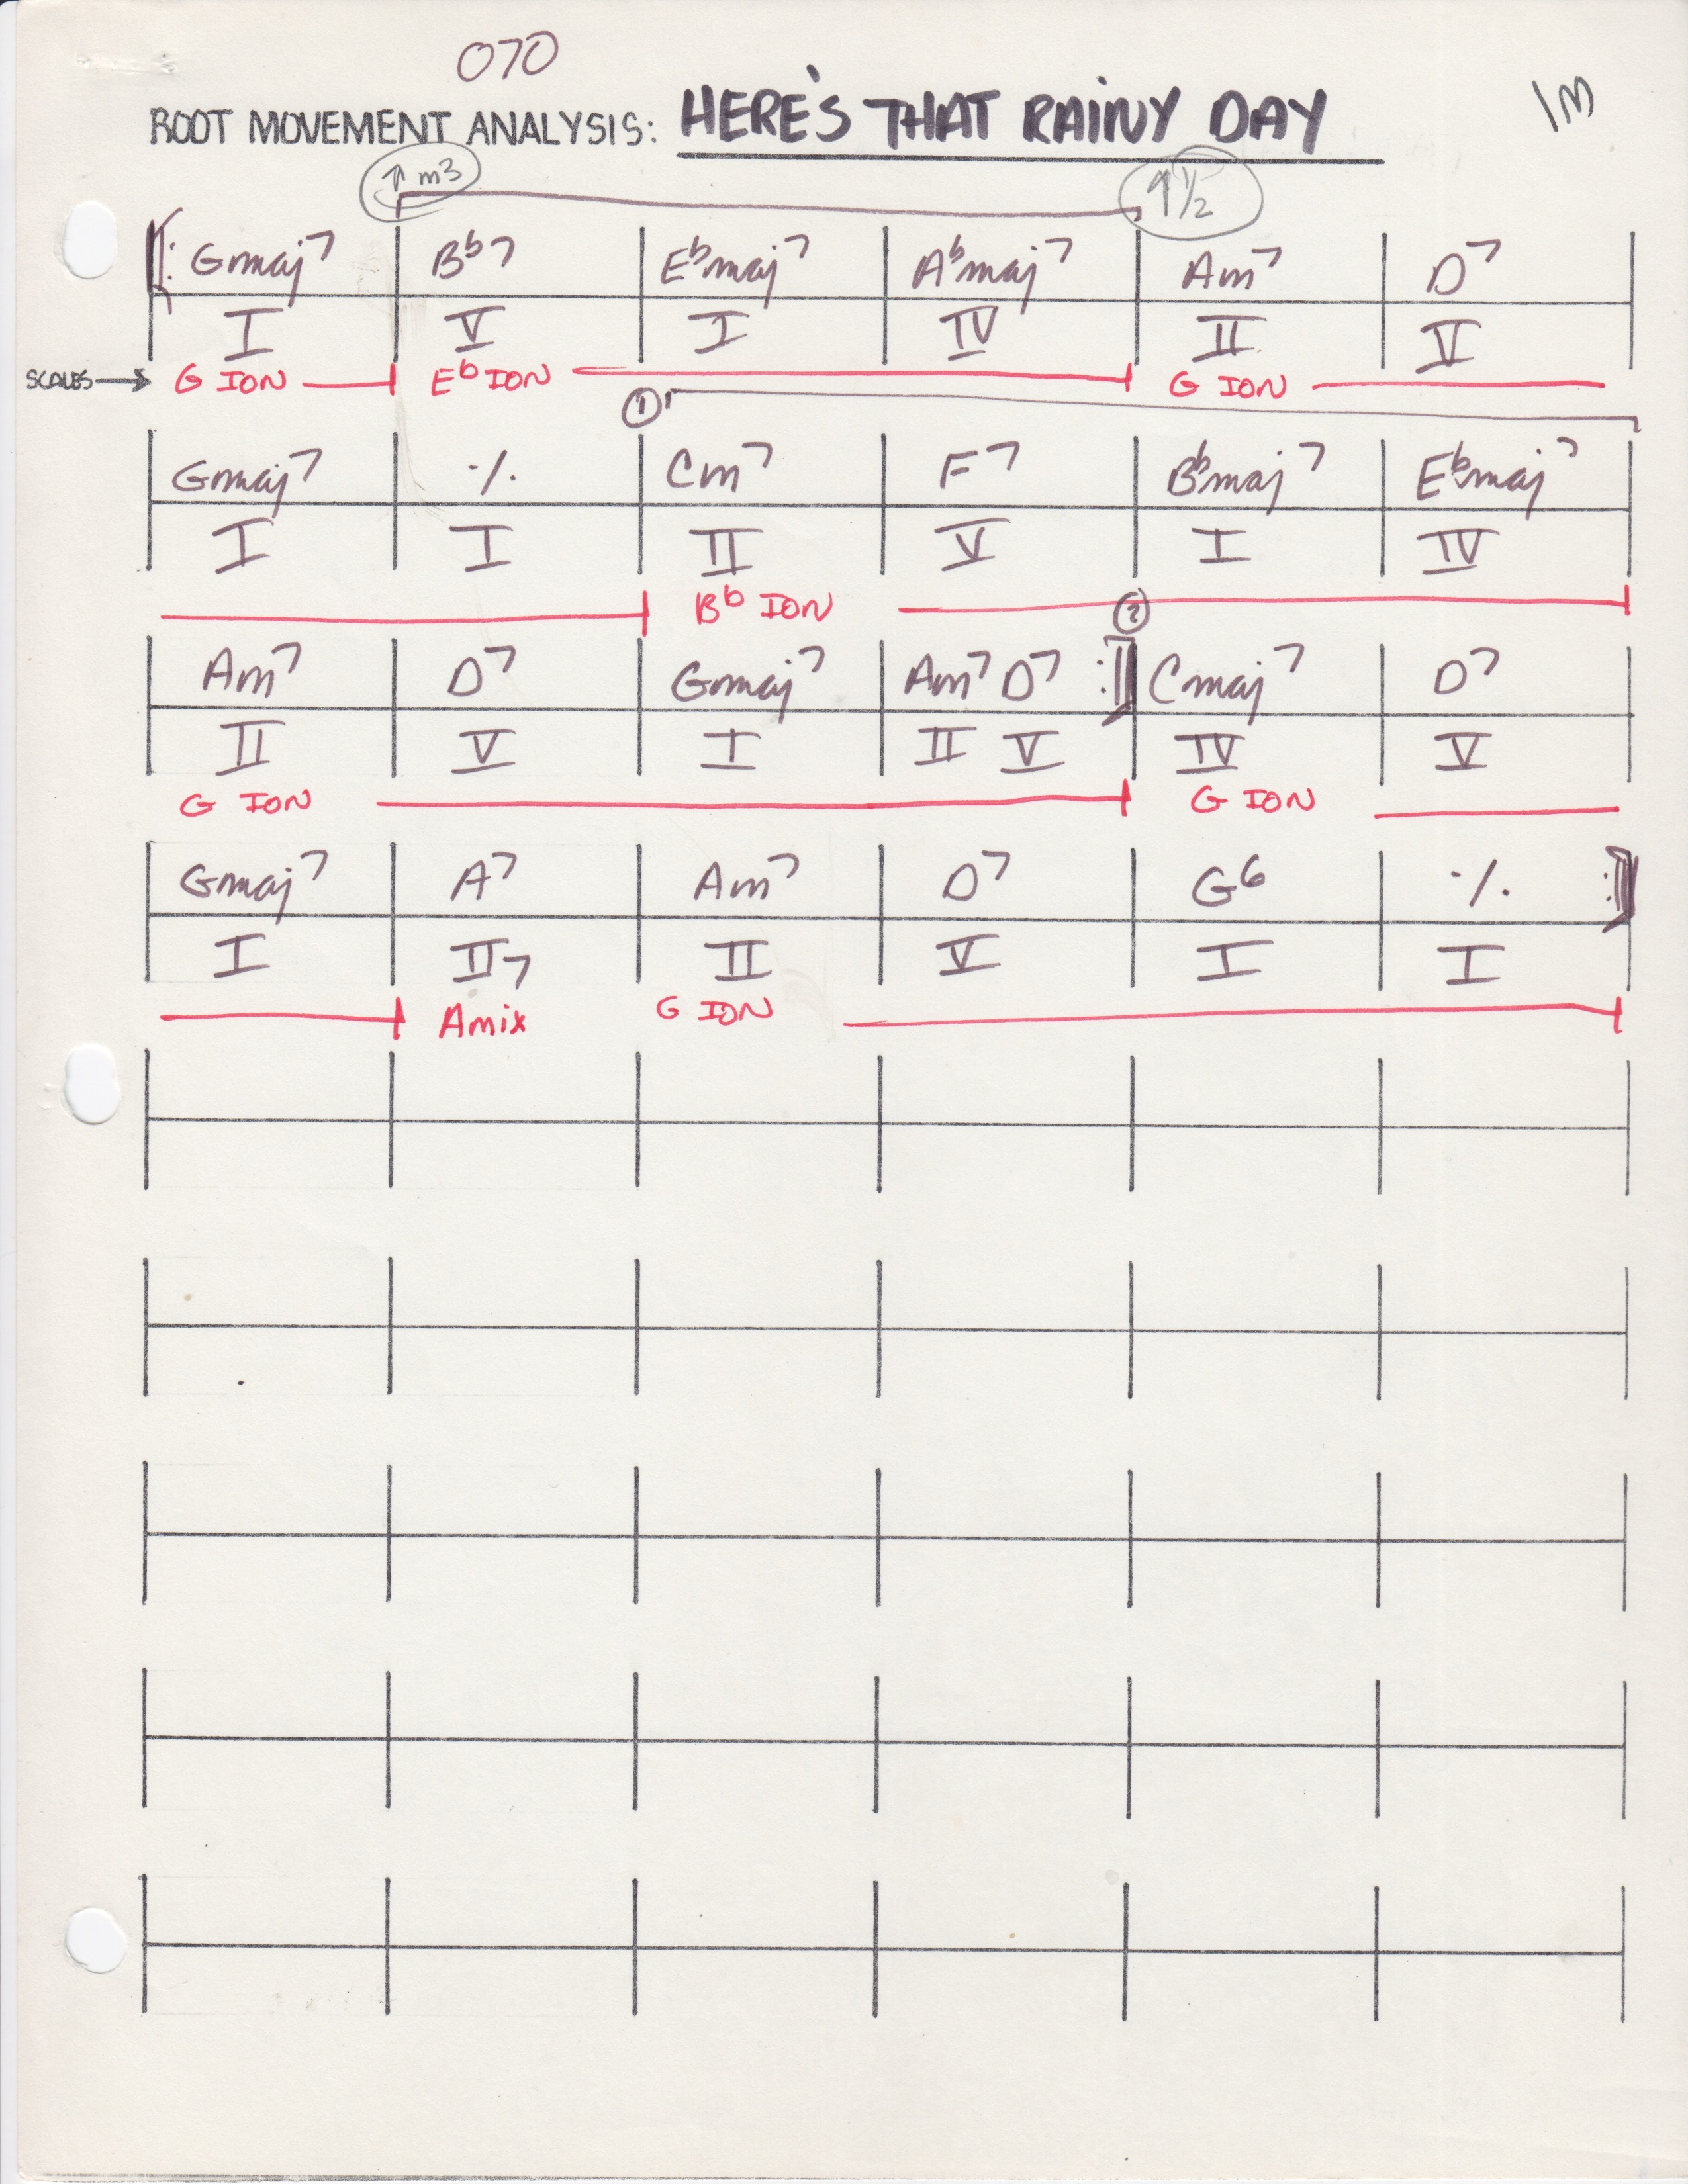 070
ROOT MOVEMENT ANALYSIS: HERE'S THAT RAINY DAY 1M
↑ m3 ↑ 1/2
Gmaj7 B♭7 E♭maj7 A♭maj7 Am7 D7
I V I IV II V
SCALES → G ION E♭ ION G ION
1
Gmaj7 ٪ Cm7 F7 B♭maj7 E♭maj7
I I II V I IV
B♭ ION
2
Am7 D7 Gmaj7 Am7 D7 Cmaj7 D7
II V I II V IV V
G ION G ION
Gmaj7 A7 Am7 D7 G6 ٪
I II7 II V I I
Amix G ION